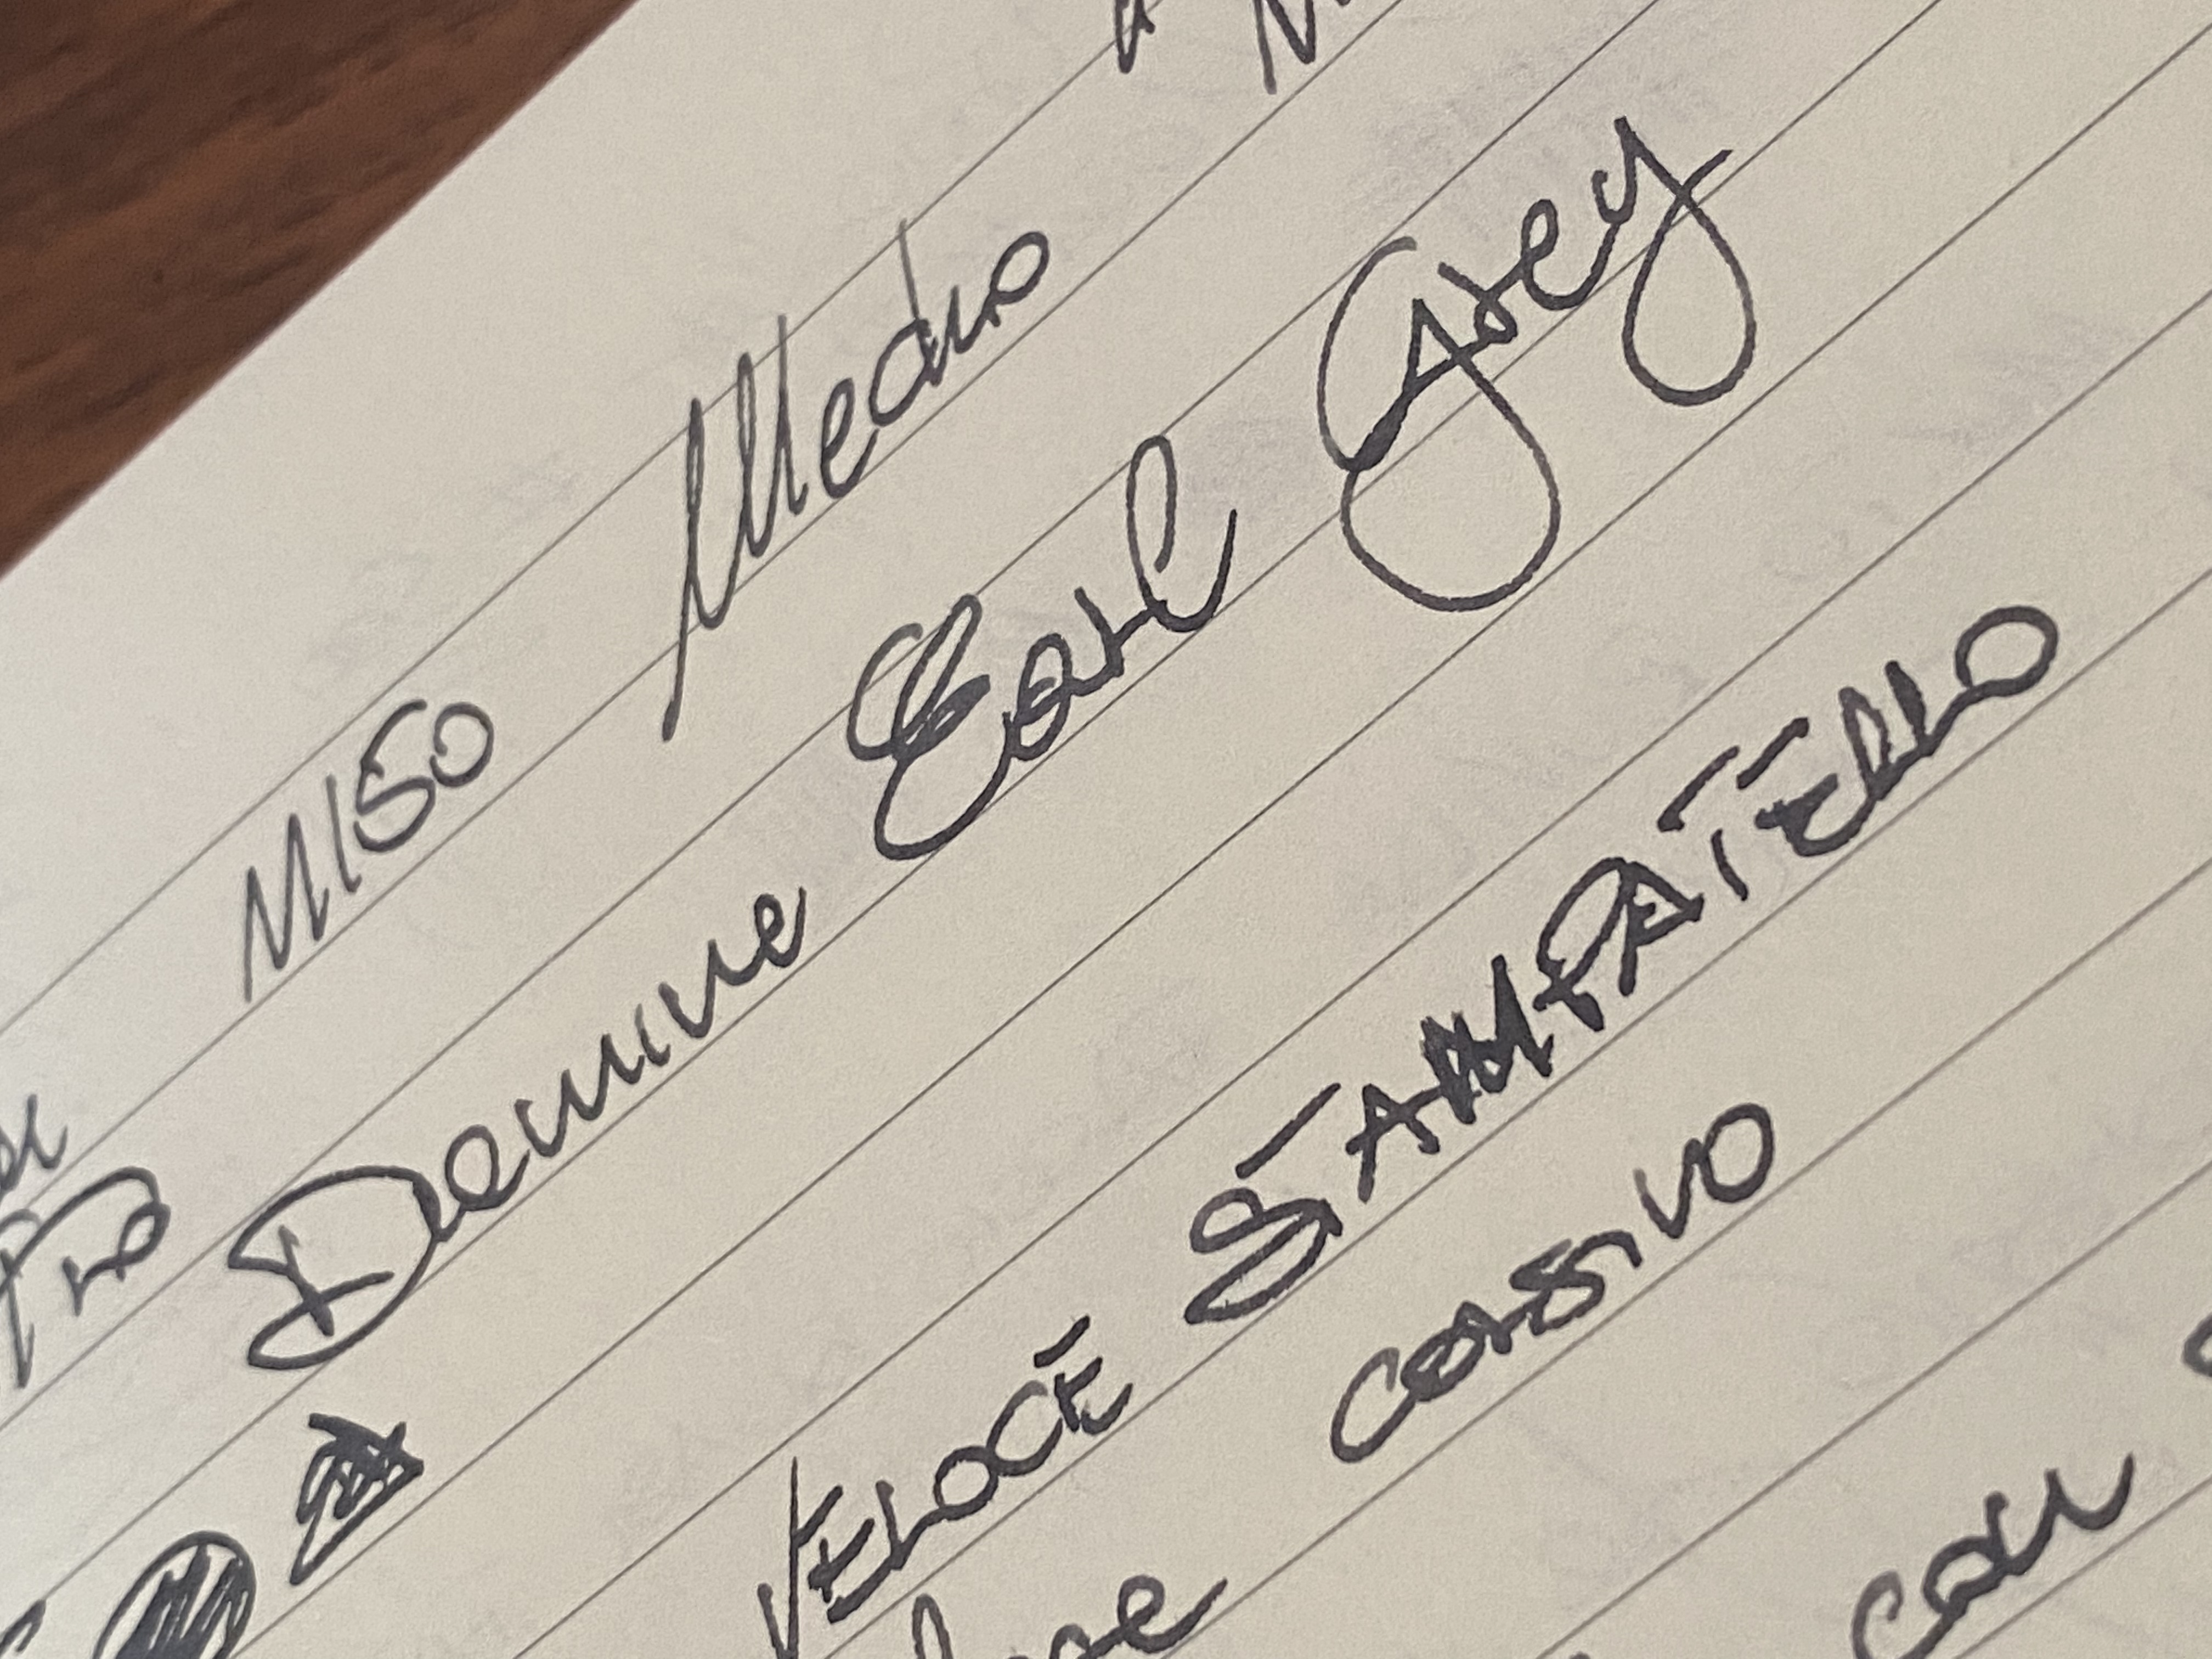 MISO Medio
Demine Earl Grey
VELOCE STAMPATELLO
CORSIVO
con